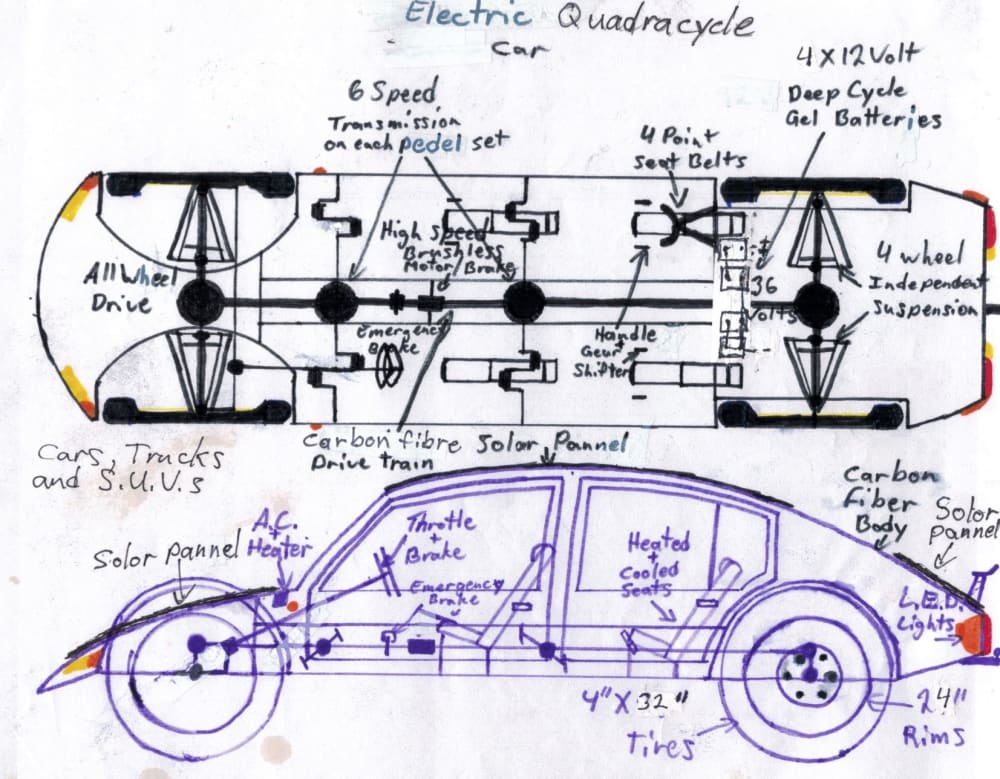 Electric Quadracycle
Car
4X12Volt
Deep Cycle
Gel Batteries
6 Speed
Transmission
on each pedel set
4 Point
Seat Belts
High Speed
Brushless
Motor/Brake
All Wheel
Drive
36
Volts
4 wheel
Independent
Suspension
Emergency
Brake
Handle
Gear
Shifter
Carbon fibre
Drive train
Solar Pannel
Cars, Trucks
and S.U.V.s
Carbon
Fiber
Body
Solor
pannel
A.C.
+
Heater
Throttle
+
Brake
Solor pannel
Heated
+
Cooled
Seats
Emergency
Brake
L.E.D.
Lights
4"X32"
Tires
24"
Rims